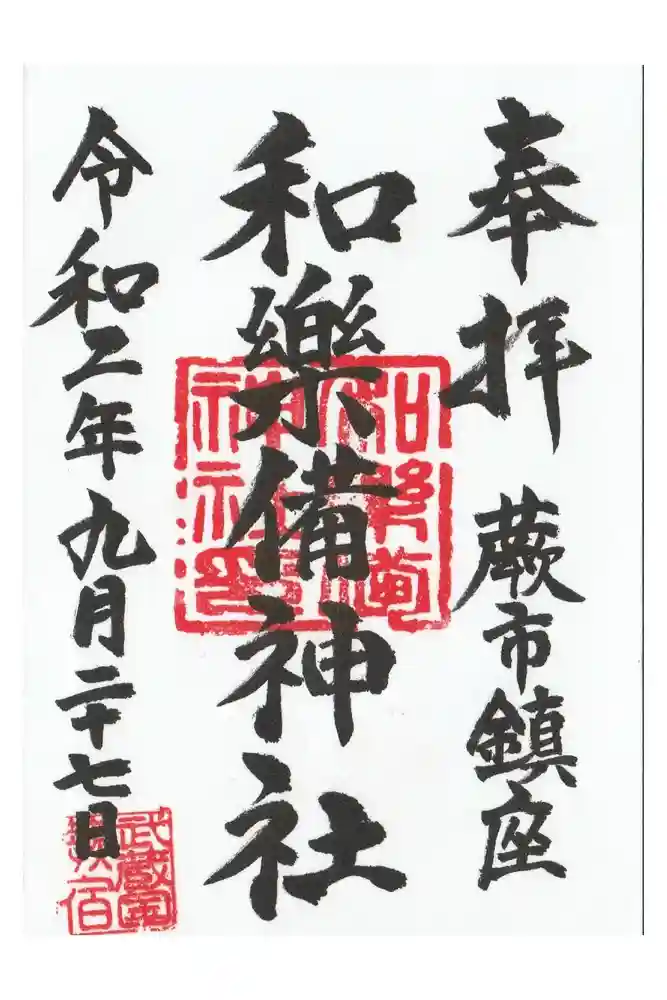 奉拝 蕨市鎮座
和樂備神社
和樂備神社印
令和二年九月二十七日
武蔵国
蕨宿